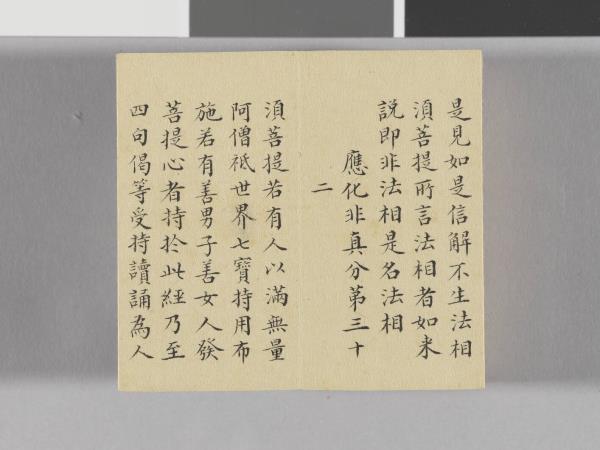 是見如是信解不生法相
須菩提所言法相者如来
說即非法相是名法相
應化非真分第三十
二
須菩提若有人以滿無量
阿僧祇世界七寶持用布
施若有善男子善女人發
菩提心者持於此經乃至
四句偈等受持讀誦為人